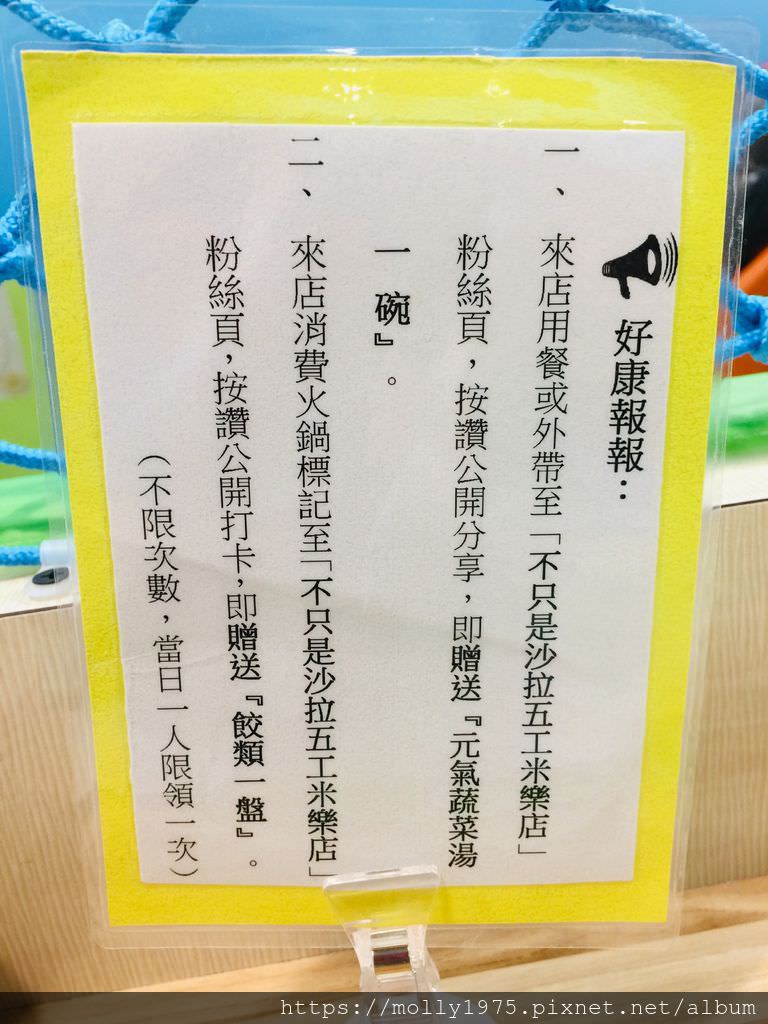 好康報報：
一、來店用餐或外帶至「不只是沙拉五工米樂店」
粉絲頁，按讚公開分享，即贈送『元氣蔬菜湯
一碗』。
二、來店消費火鍋標記至「不只是沙拉五工米樂店」
粉絲頁，按讚公開打卡，即贈送『餃類一盤』。
（不限次數，當日一人限領一次）
https://molly1975.pixnet.net/album